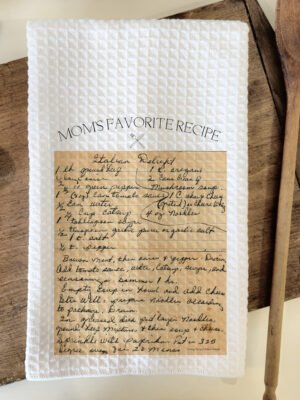 MOM'S FAVORITE RECIPE
Italian Delight
1 lb ground beef 1 t. oregano
1 onion 2 cans Cream of
1/2 green pepper Mushroom soup
can tomato sauce 1 C sharp Chedg
1/2 can water
1/4 Cup Catsup 4 oz Noodles
1 tablespoon sugar
1/2 teaspoon garlic pwd. or garlic salt
1 t. salt
1/4 t. pepper
Brown Meat, then onion & pepper. Drain
Add tomato sauce, water, Catsup, sugar, and
seasonings. Simmer 1 hr.
Empty Soup in bowl and add cheese
Stir Well. prepare Noodles according
to package. Drain.
In greased dish put layer Noodles,
ground beef Mixture, & then soup & cheese.
sprinkle with paprika. Put in 325
degree oven for 20 Minutes